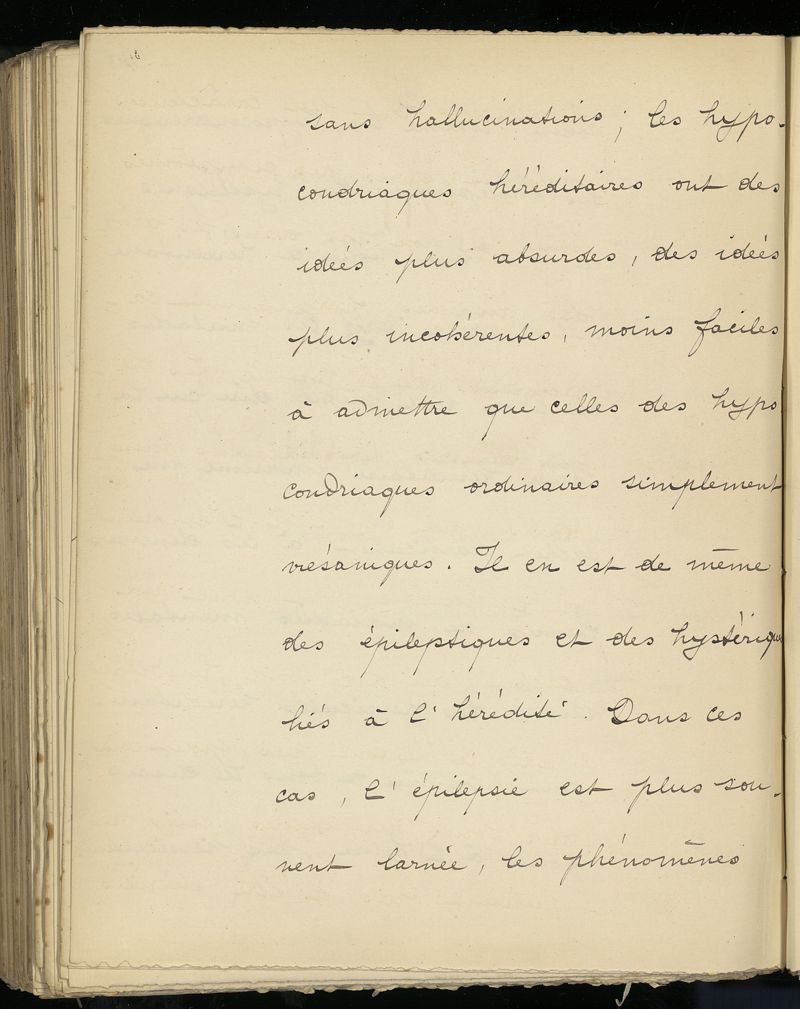 sans hallucinations ; les hypo-
condriaques héréditaires ont des
idées plus absurdes, des idées
plus incohérentes, moins faciles
à admettre que celles des hypo
condriaques ordinaires simplement
vésaniques. Il en est de même
des épileptiques et des hystériques
liés à l'hérédité. Dans ces
cas, l'épilepsie est plus sou-
vent larvée, les phénomènes